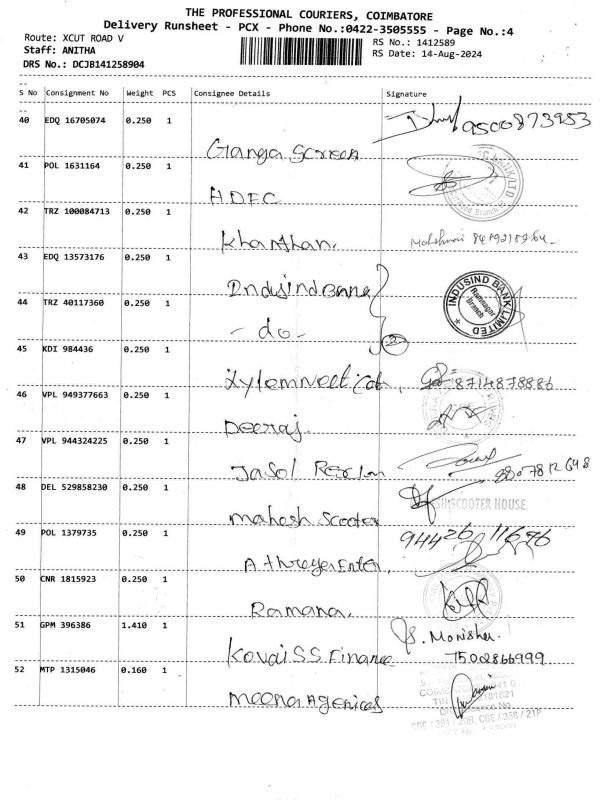 THE PROFESSIONAL COURIERS, COIMBATORE
Delivery Runsheet - PCX - Phone No.:0422-3505555 - Page No.:4
Route: XCUT ROAD V
RS No.: 1412589
Staff: ANITHA
RS Date: 14-Aug-2024
DRS No.: DCJB141258904
S No Consignment No Weight PCS Consignee Details Signature
40 EDQ 16705074 0.250 1 9500873953
Ganga Screen
41 POL 1631164 0.250 1
HDFC
42 TRZ 100084713 0.250 1
Khanthan.
43 EDQ 13573176 0.250 1 INDUSIND BANK LIMITED Branch
Indusind Bank
44 TRZ 40117360 0.250 1
- do - 2
45 KDI 984436 0.250 1
Xylem Neet 8714878886
46 VPL 949377663 0.250 1
Deeraj.
47 VPL 944324225 0.250 1
Jasol
48 DEL 529858230 0.250 1 SCOOTER HOUSE,
mahesh Scooter
49 POL 1379735 0.250 1 94426 11676
Athreya Enter.
50 CNR 1815923 0.250 1
Ramana.
51 GPM 396386 1.410 1 S. Monisha.
Kovai S.S. Finance 7502866999
52 MTP 1315046 0.160 1
Meena Agenices